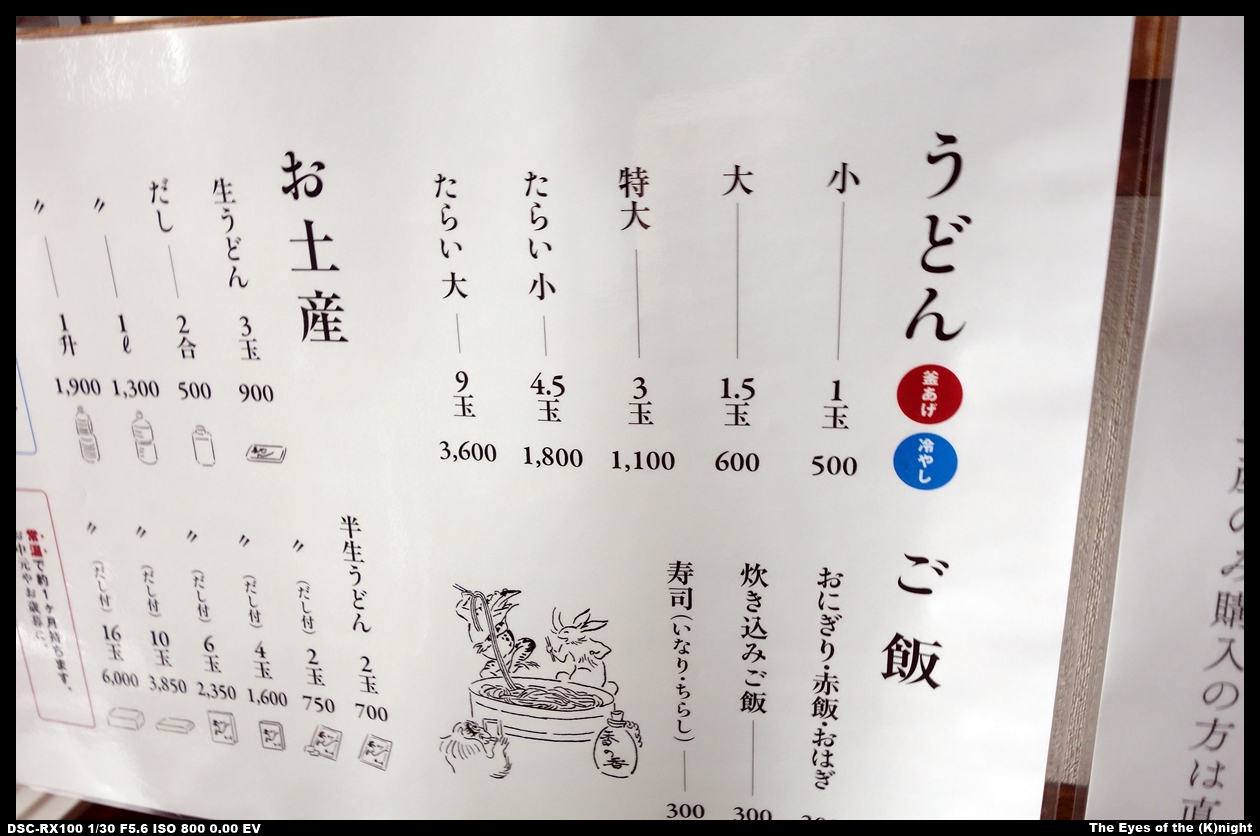 うどん
釜あげ
冷やし
小 1玉 500
大 1.5玉 600
特大 3玉 1,100
たらい 小 4.5玉 1,800
たらい 大 9玉 3,600
ご飯
おにぎり・赤飯・おはぎ
炊き込みご飯 300
寿司(いなり・ちらし) 300
香の香
お土産
生うどん 3玉 900
だし 2合 500
〃 1ℓ 1,300
〃 1升 1,900
半生うどん 2玉 700
〃 (だし付) 2玉 750
〃 (だし付) 4玉 1,600
〃 (だし付) 6玉 2,350
〃 (だし付) 10玉 3,850
〃 (だし付) 16玉 6,000
常温で約1ヶ月持ちます。
お中元やお歳暮に、
産のみ購入の方は直
DSC-RX100 1/30 F5.6 ISO 800 0.00 EV
The Eyes of the (K)night